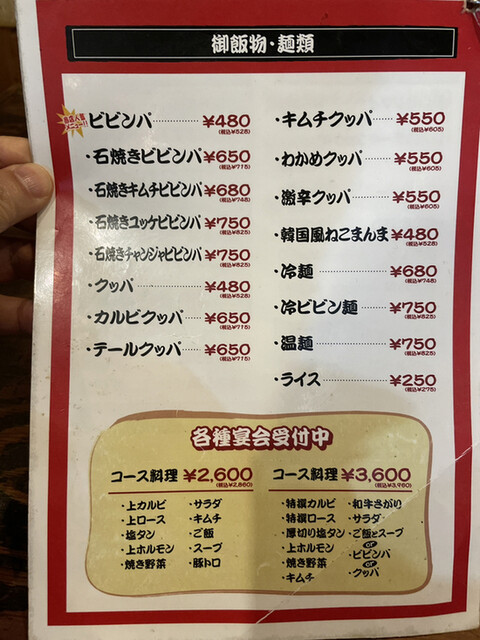 御飯物・麺類
当店人気メニュー!!
ビビンパ ¥480
(税込¥528)
・石焼きビビンパ ¥650
(税込¥715)
・石焼きキムチビビンパ ¥680
(税込¥748)
・石焼きユッケビビンパ ¥750
(税込¥825)
・石焼きチャンジャビビンパ ¥750
(税込¥825)
・クッパ ¥480
(税込¥528)
・カルビクッパ ¥650
(税込¥715)
・テールクッパ ¥650
(税込¥715)
・キムチクッパ ¥550
(税込¥605)
・わかめクッパ ¥550
(税込¥605)
・激辛クッパ ¥550
(税込¥605)
・韓国風ねこまんま ¥480
(税込¥528)
・冷麺 ¥680
(税込¥748)
・冷ビビン麺 ¥750
(税込¥825)
・温麺 ¥750
(税込¥825)
・ライス ¥250
(税込¥275)
各種宴会受付中
コース料理 ¥2,600
(税込¥2,860)
・上カルビ ・サラダ
・上ロース ・キムチ
・塩タン ・ご飯
・上ホルモン ・スープ
・焼き野菜 ・豚トロ
コース料理 ¥3,600
(税込¥3,960)
・特撰カルビ ・和牛さがり
・特撰ロース ・サラダ
・厚切り塩タン ・ご飯とスープ
or
・上ホルモン ・ビビンパ
or
・焼き野菜 ・クッパ
・キムチ